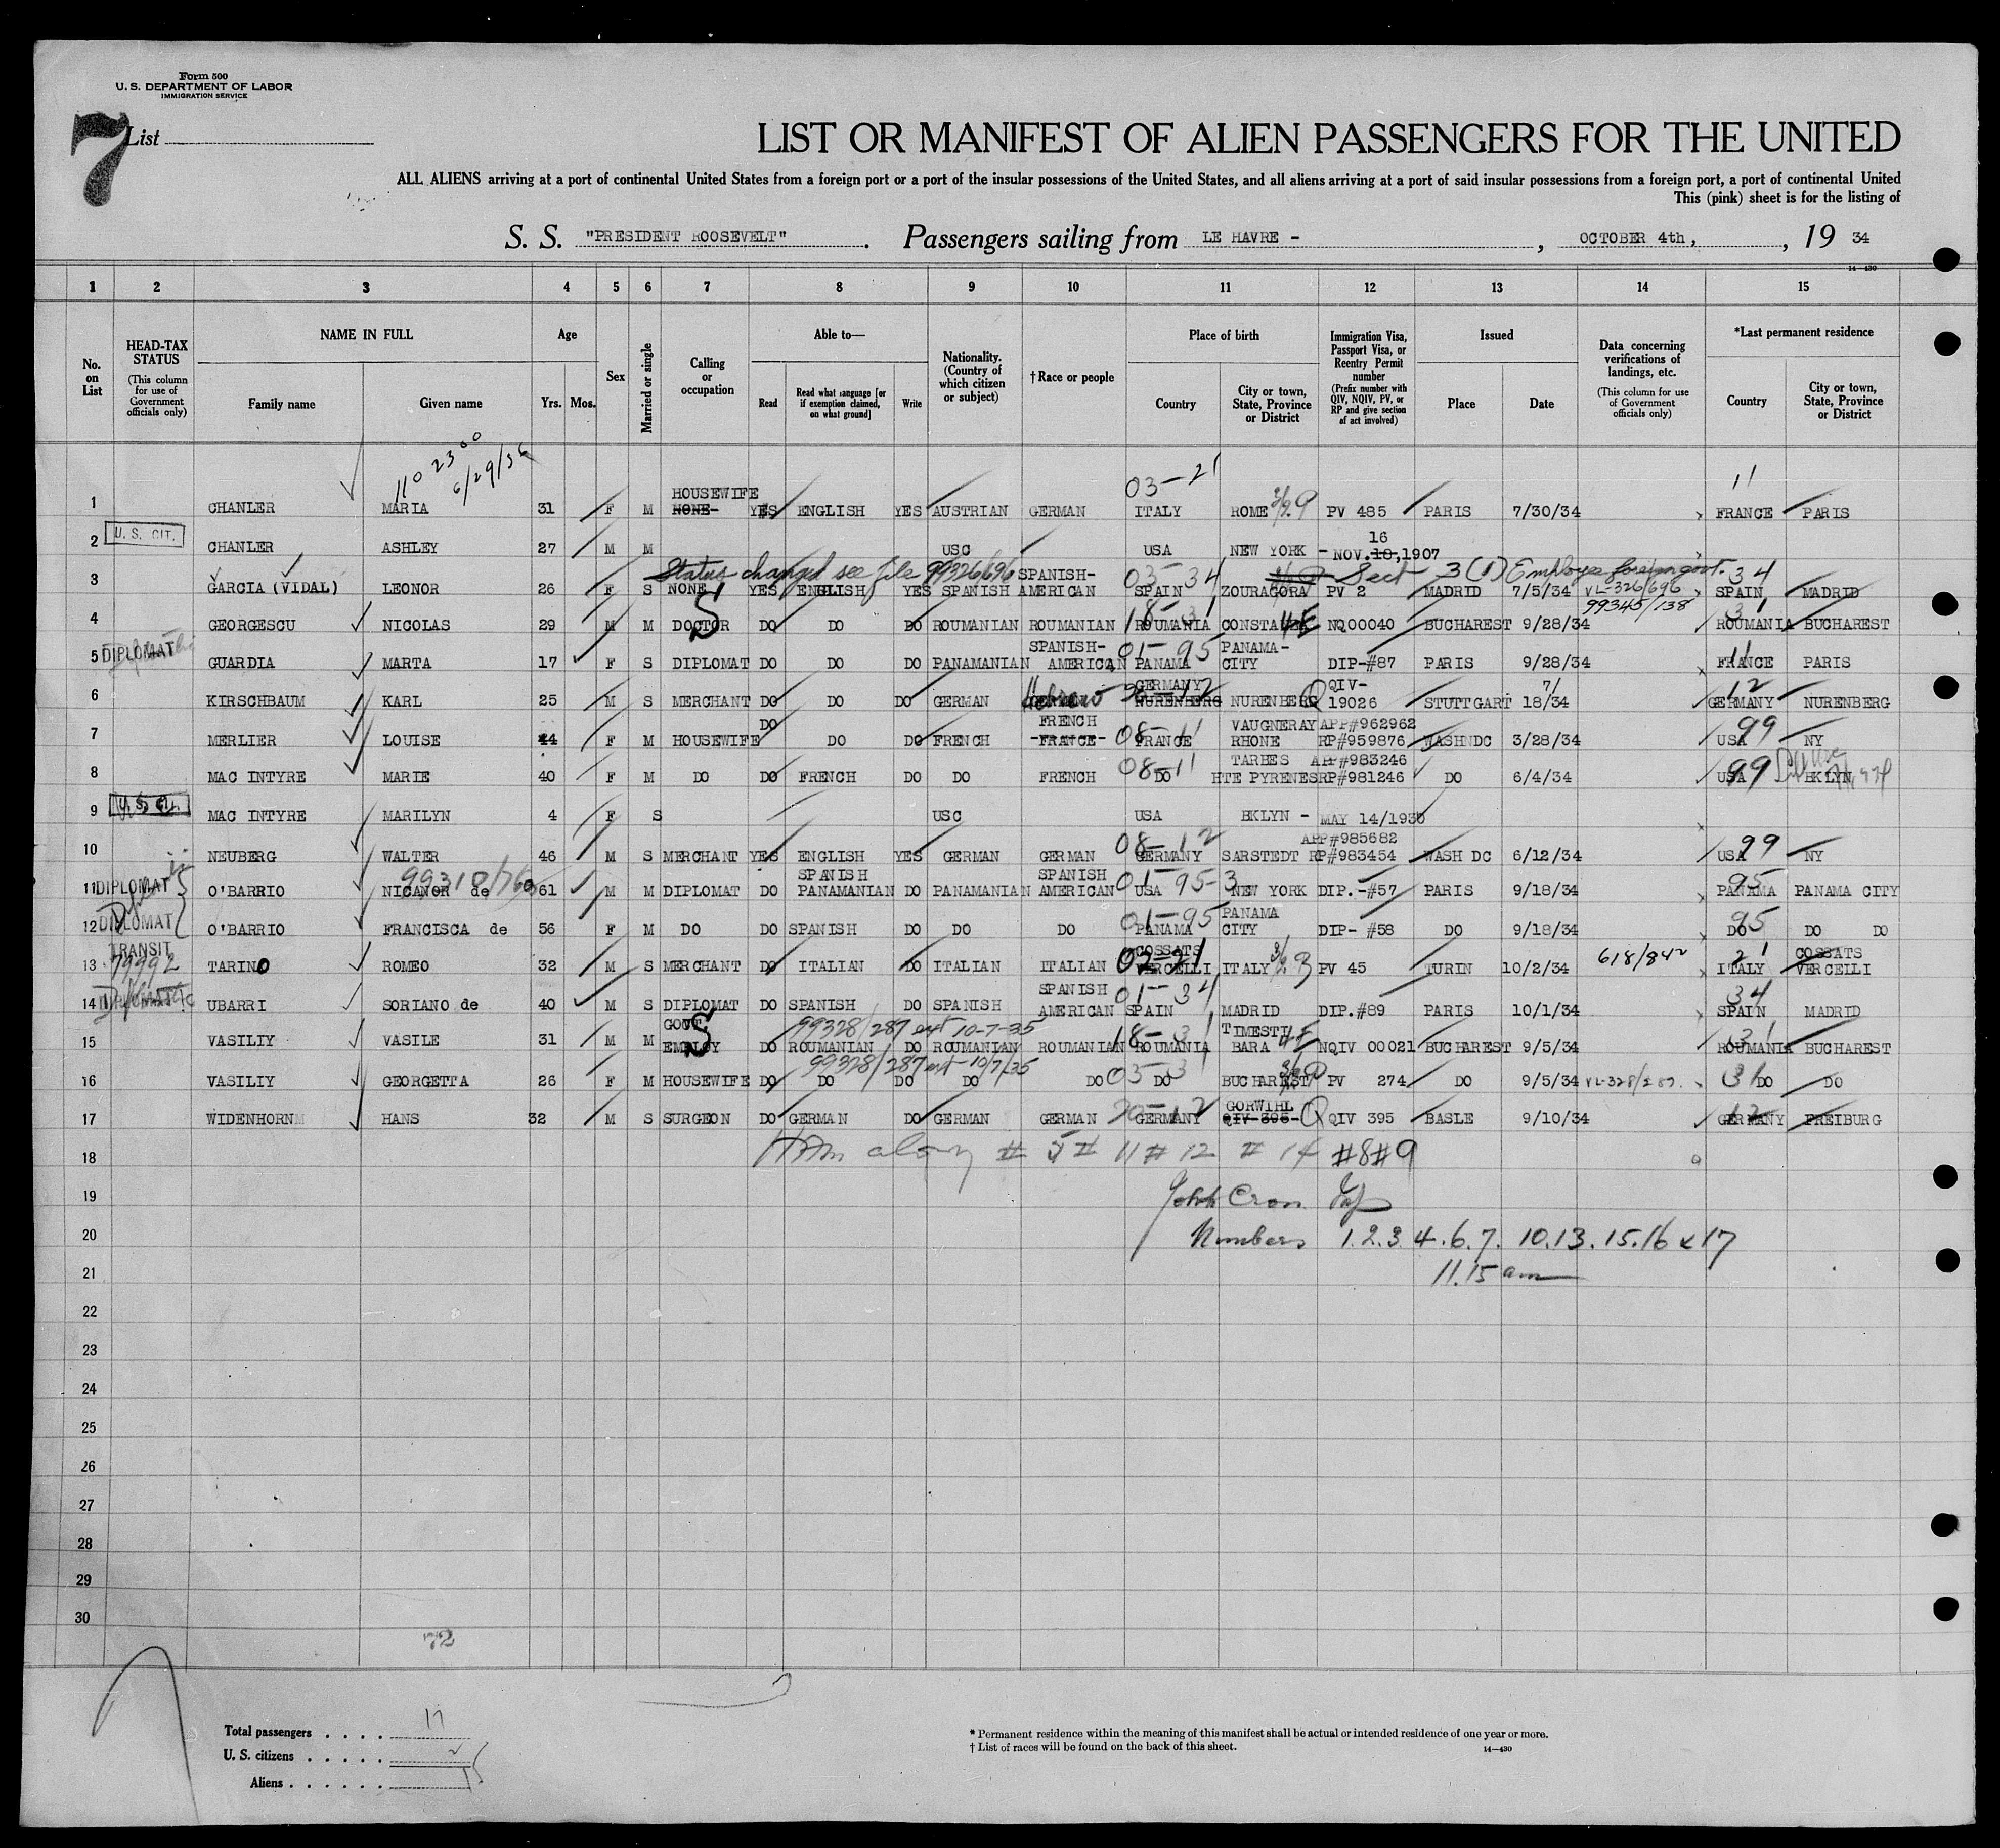 Form 500
U. S. DEPARTMENT OF LABOR
IMMIGRATION SERVICE
7
List
LIST OR MANIFEST OF ALIEN PASSENGERS FOR THE UNITED
ALL ALIENS arriving at a port of continental United States from a foreign port or a port of the insular possessions of the United States, and all aliens arriving at a port of said insular possessions from a foreign port, a port of continental United
This (pink) sheet is for the listing of
S. S. "PRESIDENT ROOSEVELT" . Passengers sailing from LE HAVRE - , OCTOBER 4th, , 19 34
14—430
1 2 3 4 5 6 7 8 9 10 11 12 13 14 15
No. on List
HEAD-TAX STATUS (This column for use of Government officials only)
NAME IN FULL
Family name Given name
Age
Yrs. Mos.
Sex
Married or single
Calling or occupation
Able to—
Read Read what language [or if exemption claimed, on what ground] Write
Nationality. (Country of which citizen or subject)
† Race or people
Place of birth
Country City or town, State, Province or District
Immigration Visa, Passport Visa, or Reentry Permit number (Prefix number with QIV, NQIV, PV, or RP and give section of act involved)
Issued
Place Date
Data concerning verifications of landings, etc. (This column for use of Government officials only)
*Last permanent residence
Country City or town, State, Province or District
6/29/36
03-21 11
1 CHANLER MARIA 31 F M HOUSEWIFE NONE- YES ENGLISH YES AUSTRIAN GERMAN ITALY ROME PV 485 PARIS 7/30/34 FRANCE PARIS
2 U. S. CIT. CHANLER ASHLEY 27 M M USC USA NEW YORK - NOV. 10, 16 1907
Status changed see file 99326/696 Sect 3(1) Employee foreign govt.
3 GARCIA (VIDAL) LEONOR 26 F S NONE YES ENGLISH YES SPANISH SPANISH-AMERICAN 03-34 SPAIN ZOURAGORA PV 2 MADRID 7/5/34 VL-326/696 34 SPAIN MADRID
99345/138
4 GEORGESCU NICOLAS 29 M M DOCTOR S DO DO DO ROUMANIAN ROUMANIAN 18-31 ROUMANIA NQ00040 BUCHAREST 9/28/34 31 ROUMANIA BUCHAREST
5 DIPLOMAT GUARDIA MARTA 17 F S DIPLOMAT DO DO DO PANAMANIAN SPANISH-AMERICAN 01-95 PANAMA PANAMA-CITY DIP-#87 PARIS 9/28/34 11 FRANCE PARIS
6 KIRSCHBAUM KARL 25 M S MERCHANT DO DO DO GERMAN Hebrew GERMANY NURENBERG NURENBERG Q QIV-19026 STUTTGART 7/18/34 12 GERMANY NURENBERG
7 MERLIER LOUISE 44 F M HOUSEWIFE DO DO DO FRENCH FRENCH -FRANCE- 08-11 FRANCE VAUGNERAY RHONE APP#962962 RP#959876 WASHNDC 3/28/34 99 USA NY
8 MAC INTYRE MARIE 40 F M DO DO FRENCH DO DO FRENCH 08-11 DO TARBES HTE PYRENES APP#983246 RP#981246 DO 6/4/34 99 USA BKLYN
9 U. S. Cit. MAC INTYRE MARILYN 4 F S USC USA BKLYN - MAY 14/1930
10 NEUBERG WALTER 46 M S MERCHANT YES ENGLISH YES GERMAN GERMAN 08-12 GERMANY SARSTEDT APP#985682 RP#983454 WASH DC 6/12/34 99 USA NY
11 DIPLOMAT O'BARRIO NICANOR de 61 M M DIPLOMAT DO SPANISH PANAMANIAN DO PANAMANIAN SPANISH AMERICAN 01-95-3 USA NEW YORK DIP.-#57 PARIS 9/18/34 95 PANAMA PANAMA CITY
12 DIPLOMAT O'BARRIO FRANCISCA de 56 F M DO DO SPANISH DO DO DO 01-95 PANAMA PANAMA CITY DIP- #58 DO 9/18/34 95 DO DO DO
13 TRANSIT 79992 TARINO ROMEO 32 M S MERCHANT DO ITALIAN DO ITALIAN ITALIAN COSSATS VERCELLI ITALY PV 45 TURIN 10/2/34 618/842 21 ITALY COSSATS VERCELLI
14 UBARRI SORIANO de 40 M S DIPLOMAT DO SPANISH DO SPANISH SPANISH AMERICAN 01-34 SPAIN MADRID DIP.#89 PARIS 10/1/34 34 SPAIN MADRID
99328/287 ext 10-7-35
15 VASILIY VASILE 31 M M GOVT EMPLOY S DO ROUMANIAN DO ROUMANIAN ROUMANIAN 18-31 ROUMANIA TIMESTI BARA NQIV 00021 BUCHAREST 9/5/34 31 ROUMANIA BUCHAREST
99328/287 ext 10/7/35
16 VASILIY GEORGETTA 26 F M HOUSEWIFE DO DO DO DO DO 03-31 DO BUCHAREST PV 274 DO 9/5/34 VL-328/287. 31 DO DO
17 WIDENHORN HANS 32 M S SURGEON DO GERMAN DO GERMAN GERMAN GERMANY GORWIHL QIV-395- Q QIV 395 BASLE 9/10/34 12 GERMANY FREIBURG
18 along # 5 # 11 # 12 # 14 #8#9
19 John Cron
20 Numbers 1.2.3 4.6.7. 10.13.15.16 & 17
21 11.15 am
22
23
24
25
26
27
28
29
30
72
Total passengers . . . . 17
U. S. citizens . . . . . 2
Aliens . . . . . . 15
* Permanent residence within the meaning of this manifest shall be actual or intended residence of one year or more.
† List of races will be found on the back of this sheet.
14—430